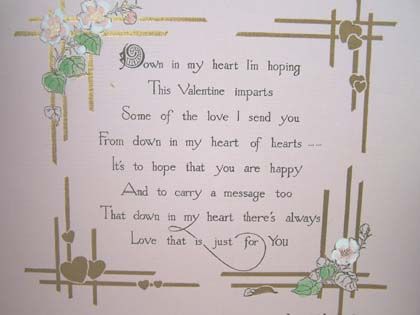 Down in my heart I'm hoping
This Valentine imparts
Some of the love I send you
From down in my heart of hearts ----
It's to hope that you are happy
And to carry a message too
That down in my heart there's always
Love that is just for You